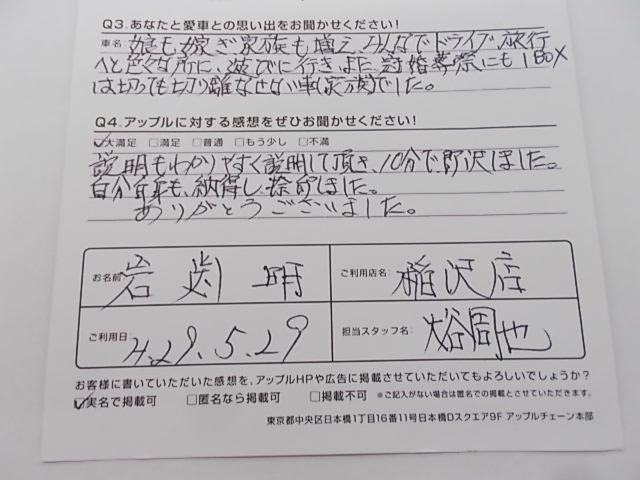 Q3.あなたと愛車との思い出をお聞かせください!
車名:娘も嫁ぎ家族も増え、みんなでドライブ旅行
へと色々な所に、遊びに行き、また、冠婚葬祭にも1BOX
は切っても切り離なせない車(家族)でした。
Q4.アップルに対する感想をぜひお聞かせください!
☑大満足 □満足 □普通 □もう少し □不満
説明もわかりやすく説明して頂き、10分で即決しました。
自分自身も、納得し捺印しました。
ありがとうございました。
お名前 岩 明
ご利用店名: 稲沢店
ご利用日: H.29.5.29
担当スタッフ名: 大谷周也
お客様に書いていただいた感想を、アップルHPや広告に掲載させていただいてもよろしいでしょうか?
☑実名で掲載可 □匿名なら掲載可 □掲載不可 ※ご記入がない場合は匿名での掲載とさせていただきます。
東京都中央区日本橋1丁目16番11号日本橋Dスクエア9F アップルチェーン本部